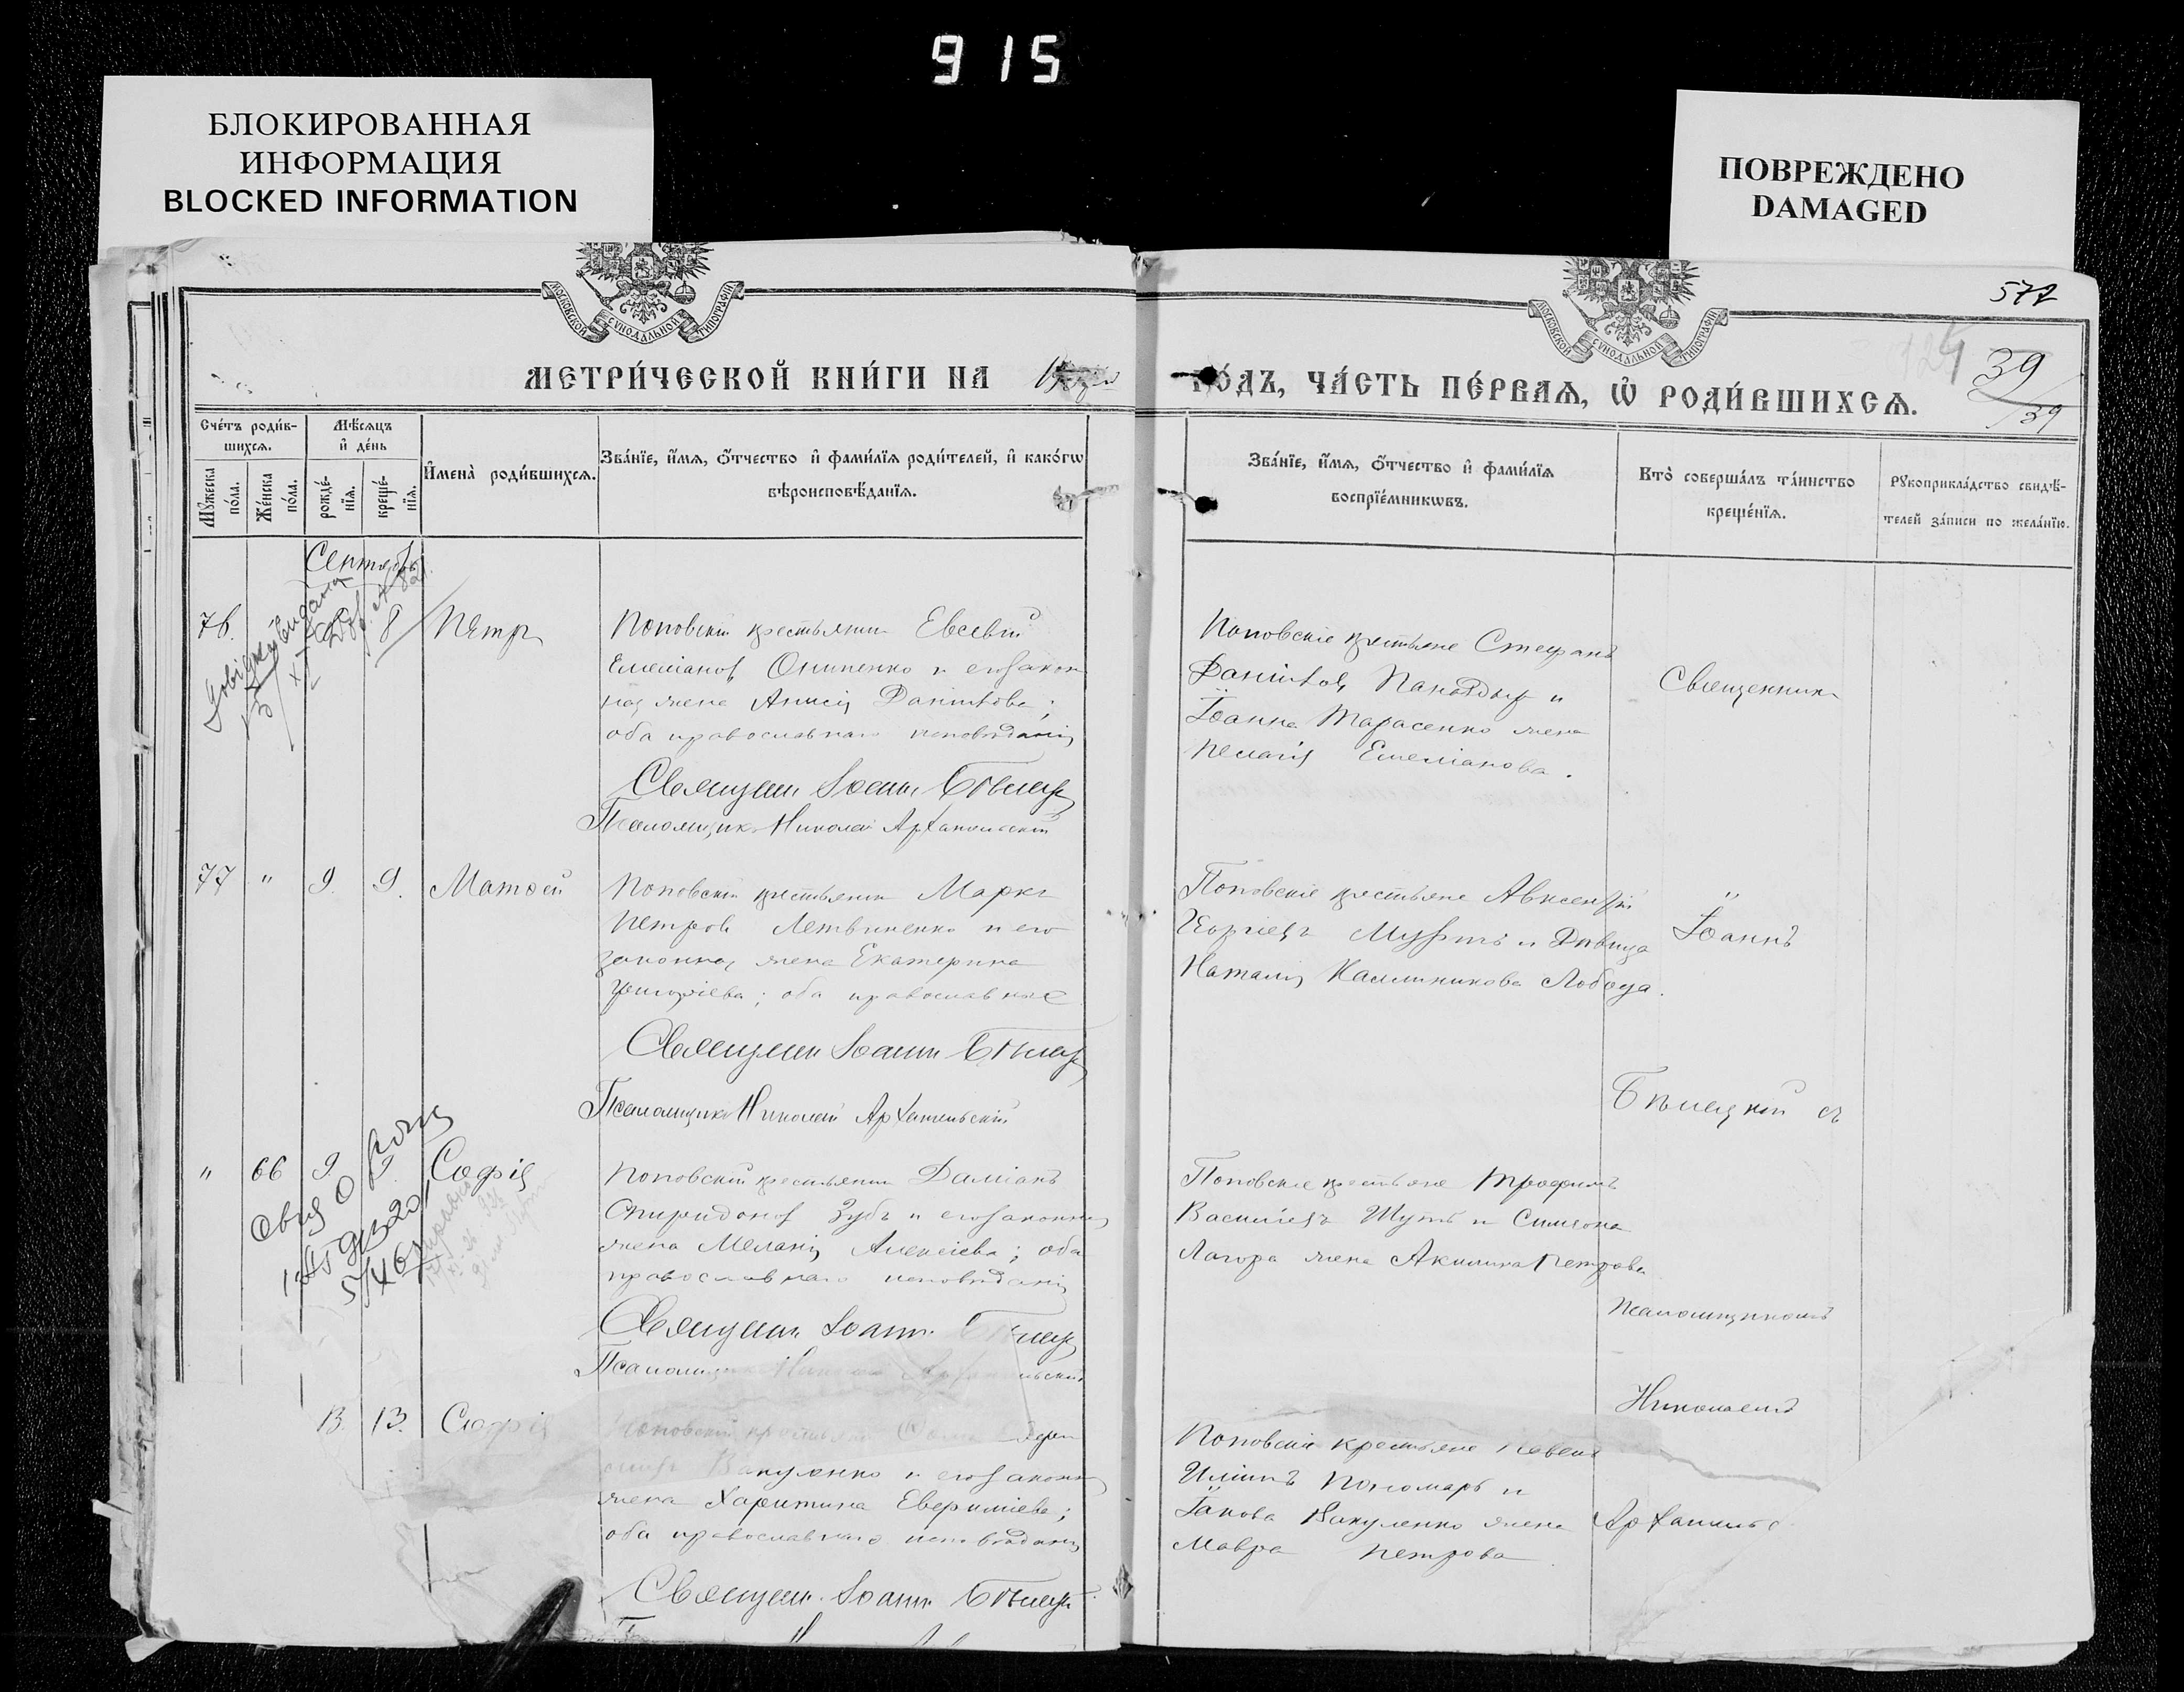 915
БЛОКИРОВАННАЯ
ИНФОРМАЦИЯ
BLOCKED INFORMATION
ПОВРЕЖДЕНО
DAMAGED
577
МОСКОВСКОЙ СѴНОДАЛЬНОЙ ТИПОГРАФІИ
МОСКОВСКОЙ СѴНОДАЛЬНОЙ ТИПОГРАФІИ
124
39
39
МЕТРИ́ЧЕСКОЙ КНИ́ГИ НА
ГО́ДЪ, ЧА́СТЬ ПЕ́РВАѦ, Ѡ҆ РОДИ́ВШИХСѦ.
Сче́тъ роди́в-
шихсѧ.
Мꙋ́жеска по́ла.
Же́нска по́ла.
Мѣ́сѧцъ
и҆ де́нь
рожде́-нїѧ.
креще́-нїѧ.
И҆мена̀ роди́вшихсѧ.
Зва́нїе, и҆́мѧ, ѻ҆́тчество и҆ фами́лїѧ роди́телей, и҆ како́гѡ
вѣроисповѣ́данїѧ.
Зва́нїе, и҆́мѧ, ѻ҆́тчество и҆ фами́лїѧ
воспрїе́мникѡвъ.
Кто̀ соверша́лъ та́инство
креще́нїѧ.
Рꙋкоприкла́дство свидѣ́-
телей за́писи по жела́нїю.
Сентябрь
76. 8 Петр
Поповскій крестьянинъ Евсевій
Емеліановъ Онипенко и его закон
ная жена Анисія Даніилова;
оба православнаго исповѣданія
Священ. Іоаннъ Бѣлецк
Псаломщикъ Николай Архангельскій
Поповскіе крестьяне Стефанъ
Даніиловъ и
Іоанна Тарасенко жена
Пелагія Емеліанова.
Священникъ
77 " 9. 9. Матѳей
Поповскій крестьянинъ Маркъ
Петровъ Летвиненко и его
законная жена Екатерина
Григоріева; оба православные
Священ. Іоаннъ Бѣлецк
Псаломщикъ Николай Архангельскій
Поповскіе крестьяне Авксентій
Георгіевъ и Дѣвица
Наталія Каллиникова Лобода.
Іоаннъ
Бѣлецкій съ
" 66 9 9 Софія
Поповскій крестьянинъ Даміанъ
Спиридоновъ Зубъ и его законная
жена Меланія Алексіева; оба
православнаго исповѣданія
Священ. Іоаннъ Бѣлецк
Псаломщикъ
Поповскіе крестьяне Трофимъ
Василіевъ Шутъ и Симеона
Лагора жена Акилина Петрова
псаломщикомъ
Николаемъ
13. 13. Софія
Поповскій
Вакуленко и его законная
жена Харитина Евфиміева;
оба православнаго исповѣданія
Священ. Іоаннъ Бѣлецк
Поповскіе крестьяне Павелъ
Иліинъ Пономарь и
Іакова Вакуленко жена
Мавра Петрова
Архангельс